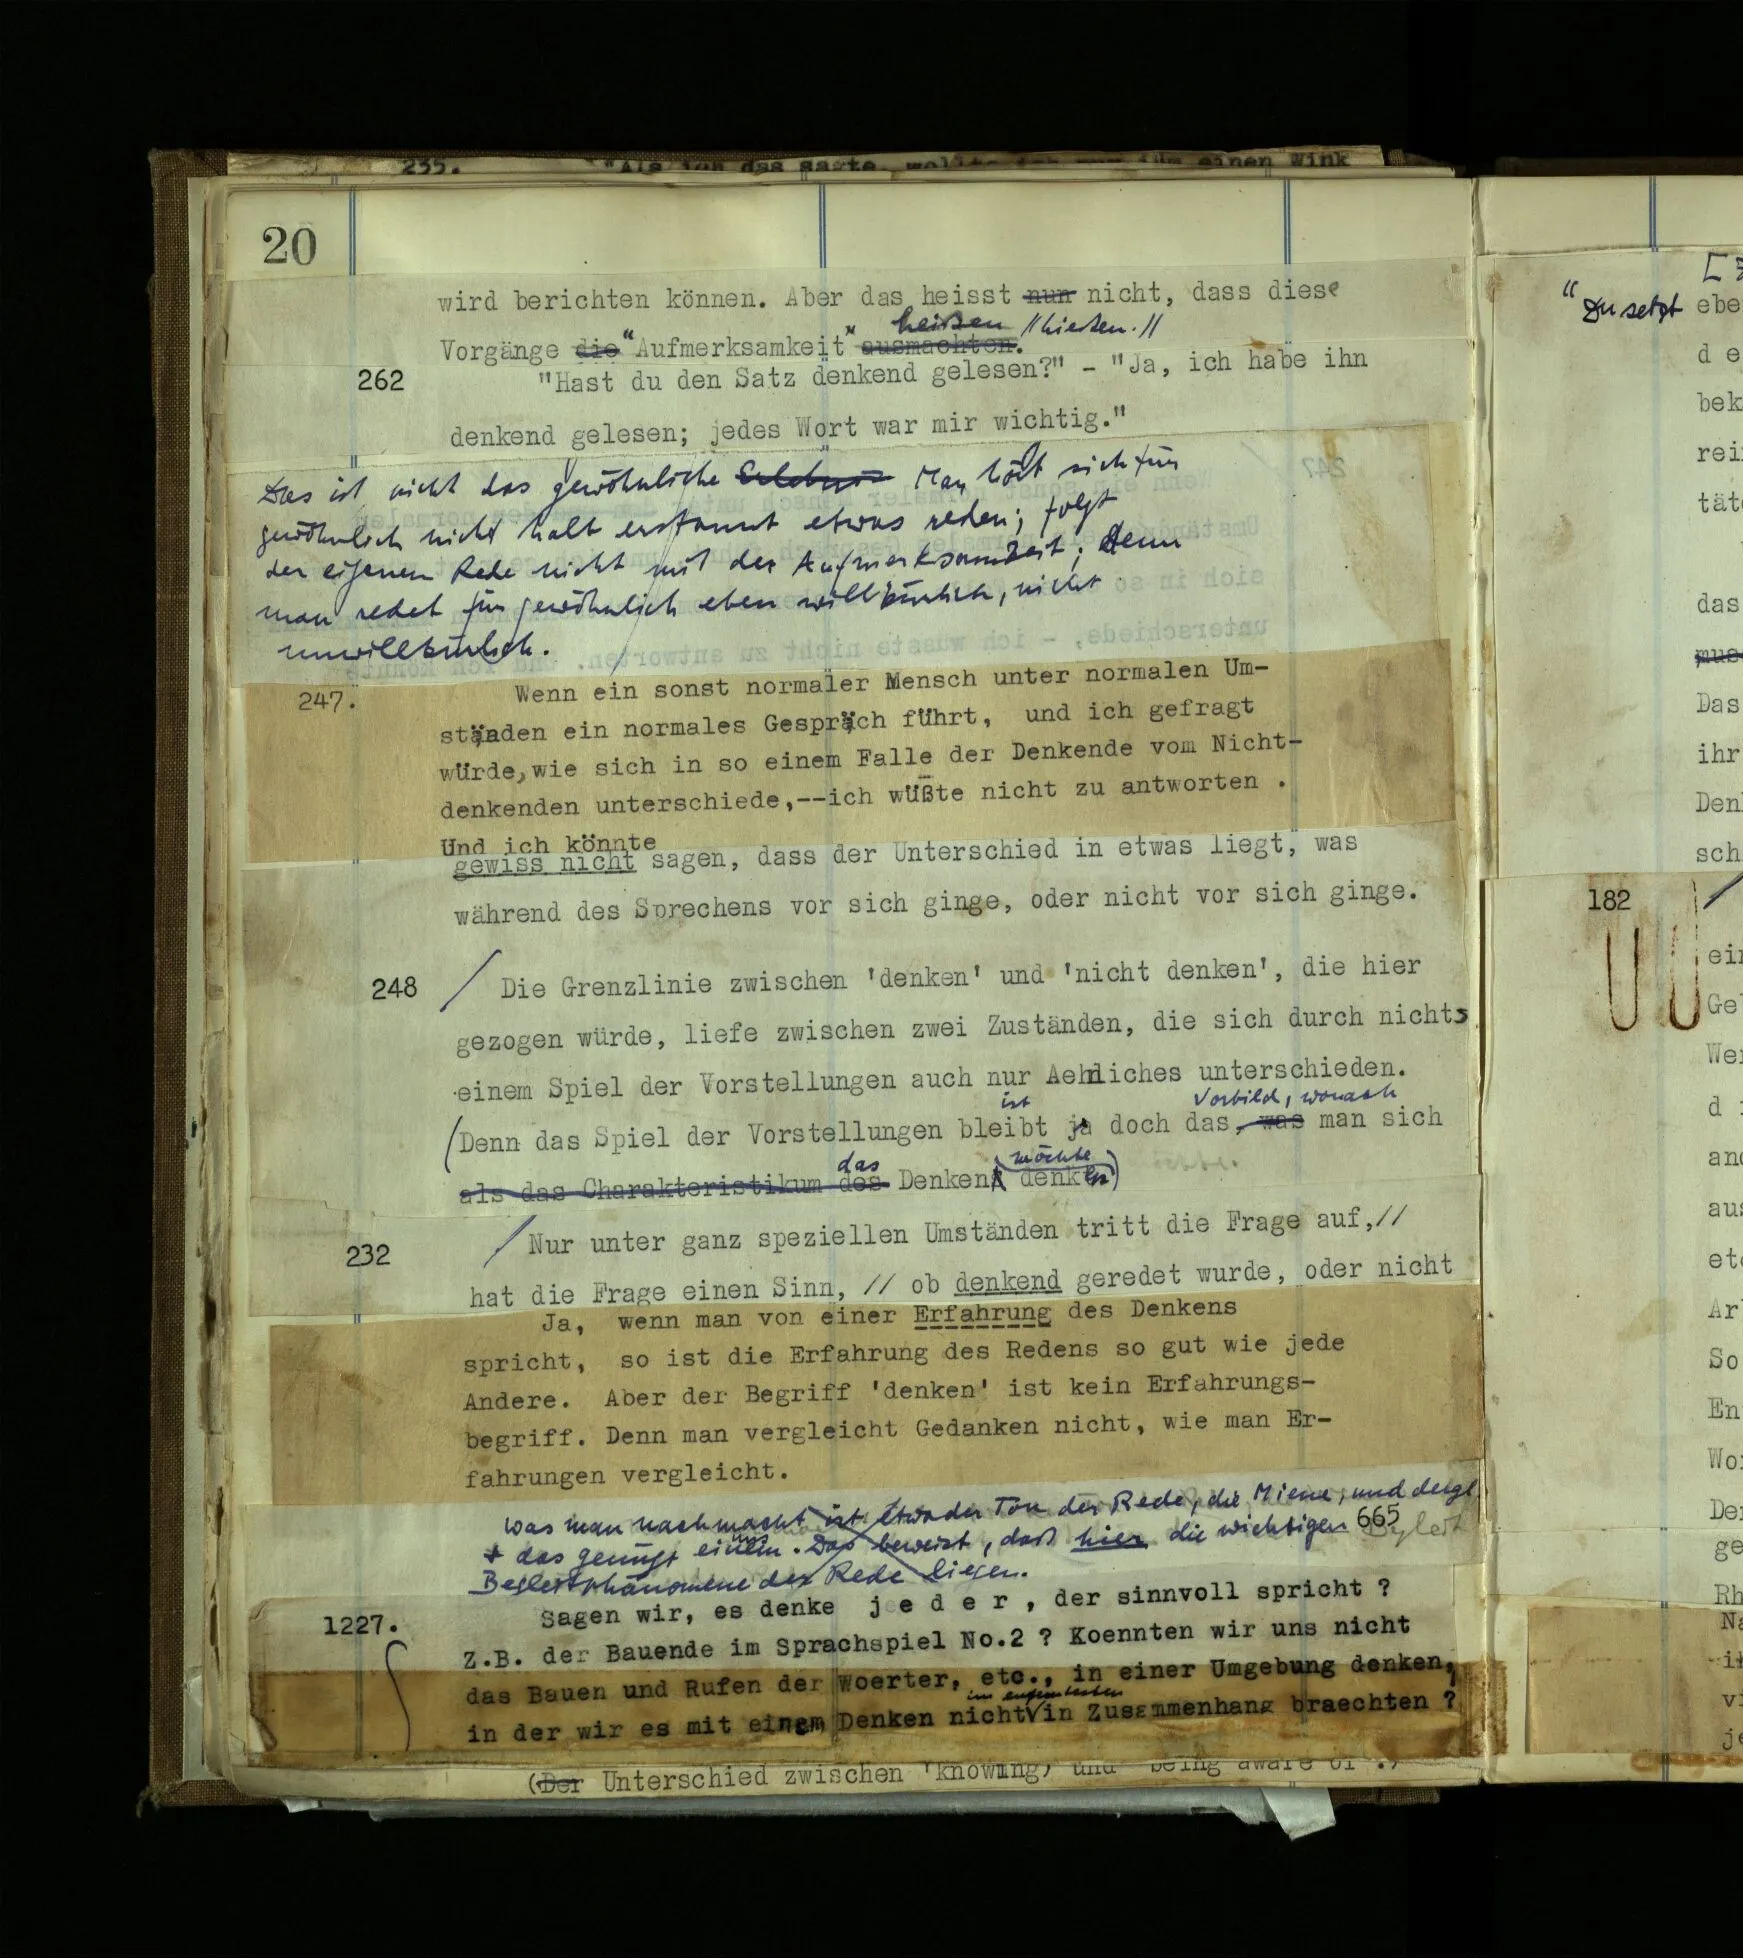 235. "Als ich das sagte, wollte ich nur ihm einen Wink
20
wird berichten können. Aber das heisst nun nicht, dass diese
heißen //hießen.//
Vorgänge die "Aufmerksamkeit" ausmachten.
262 "Hast du den Satz denkend gelesen?" - "Ja, ich habe ihn
denkend gelesen; jedes Wort war mir wichtig."
Das ist nicht das gewöhnliche Erlebnis Man hört sich für
gewöhnlich nicht halb erstaunt etwas reden; folgt
der eigenen Rede nicht mit der Aufmerksamkeit; denn
man redet für gewöhnlich eben willkürlich, nicht
unwillkürlich.
247. Wenn ein sonst normaler Mensch unter normalen Um-
ständen ein normales Gespräch führt, und ich gefragt
würde, wie sich in so einem Falle der Denkende vom Nicht-
denkenden unterschiede,--ich wüßte nicht zu antworten .
Und ich könnte
gewiss nicht sagen, dass der Unterschied in etwas liegt, was
während des Sprechens vor sich ginge, oder nicht vor sich ginge.
248 / Die Grenzlinie zwischen 'denken' und 'nicht denken', die hier
gezogen würde, liefe zwischen zwei Zuständen, die sich durch nichts
einem Spiel der Vorstellungen auch nur Aehnliches unterschieden.
ist Vorbild, wonach
(Denn das Spiel der Vorstellungen bleibt ja doch das, was man sich
das möchte
als das Charakteristikum des Denkens denken)
232 / Nur unter ganz speziellen Umständen tritt die Frage auf,//
hat die Frage einen Sinn, // ob denkend geredet wurde, oder nicht
Ja, wenn man von einer Erfahrung des Denkens
spricht, so ist die Erfahrung des Redens so gut wie jede
Andere. Aber der Begriff 'denken' ist kein Erfahrungs-
begriff. Denn man vergleicht Gedanken nicht, wie man Er-
fahrungen vergleicht.
Was man nachmacht ist etwa der Ton der Rede, die Miene, und dergl
+ das genügt einem uns. Das beweist, daß hier die wichtigen 665
Begleitphänomene der Rede liegen.
1227. Sagen wir, es denke j e d e r , der sinnvoll spricht ?
Z.B. der Bauende im Sprachspiel No.2 ? Koennten wir uns nicht
das Bauen und Rufen der Woerter, etc., in einer Umgebung denken,
im entferntesten
in der wir es mit einem Denken nicht in Zusammenhang braechten ?
(Der Unterschied zwischen 'knowing' und 'being aware of'.)
"Du setzt ebe
d e
bek
rei
tät
das
mus
Das
ihr
Den
sch
182
ein
Ge
We
d
and
aus
etc
Ar
So
En
Wo
De
ge
Rh
Na
i
v
je